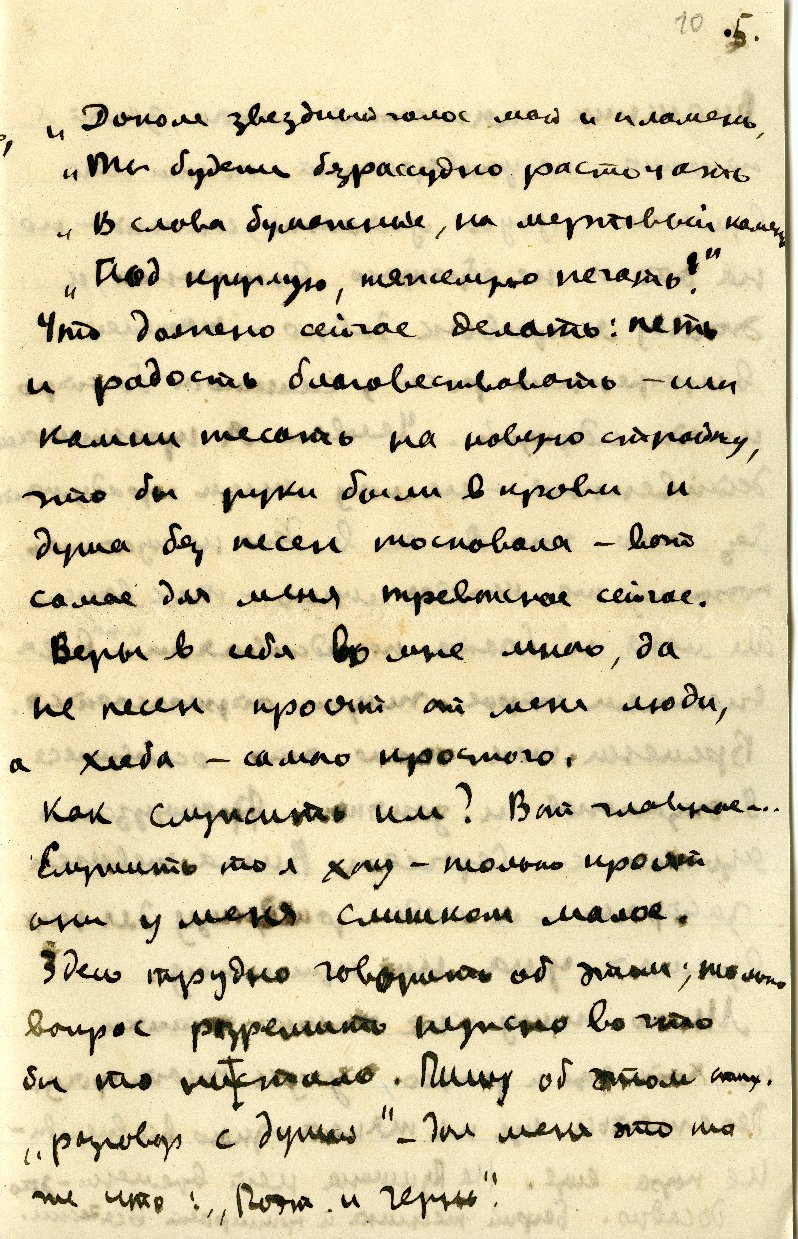 10 .5.
„ Доколе звездный голос мой и пламень,
„ Ты будешь безрассудно расточать
„ В слова бумажные, на мертвый камень
„ Под круглую, тяжелую печать?"
Что должно сейчас делать: петь
и радость благовествовать – или
камни тесать на новую стройку,
что бы руки были в крови и
душа без песен тосковала – вот
самое для меня тревожное сейчас.
Веры в себя во мне много, да
не песен просят от меня люди,
а хлеба – самого простого.
Как служить им? Вот главное...
Служить то я хочу – только просят
они у меня слишком малое.
Здесь трудно говорить об этом; только
вопрос разрешить нужно во что
бы то ни стало. Пишу об этом
„разговор с душой" – для меня это то
же что: „Поэт и чернь".